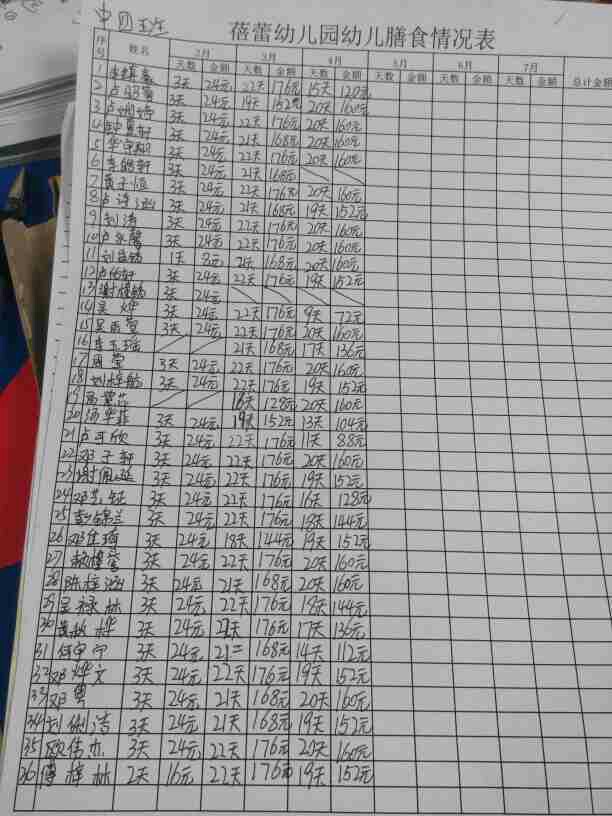 中四班
蓓蕾幼儿园幼儿膳食情况表
序号 姓名 2月 3月 4月 5月 6月 7月 总计金额
天数 金额 天数 金额 天数 金额 天数 金额 天数 金额 天数 金额
1 3天 24元 22天 176元 15天 120元
2 3天 24元 19天 152元 20天 160元
3 3天 24元 22天 176元 20天 160元
4 3天 24元 21天 168元 20天 160元
5 3天 24元 22天 176元 20天 160元
6 3天 24元 21天 168元
7 黄子恒 3天 24元 22天 176元 20天 160元
8 卢诗涵 3天 24元 21天 168元 19天 152元
9 刘涛 3天 24元 22天 176元 20天 160元
10 卢永馨 3天 24元 22天 176元 20天 160元
11 1天 8元 21天 168元 20天 160元
12 3天 24元 22天 176元 19天 152元
13 3天 24元
14 吴烨 3天 24元 22天 176元 9天 72元
15 吴雨萱 3天 24元 22天 176元 20天 160元
16 21天 168元 17天 136元
17 周莹 3天 24元 22天 176元 20天 160元
18 刘梓航 3天 24元 22天 176元 19天 152元
19 16天 128元 20天 160元
20 汤华菲 3天 24元 19天 152元 13天 104元
21 卢可欣 3天 24元 22天 176元 11天 88元
22 邓子轩 3天 24元 22天 176元 20天 160元
23 3天 24元 22天 176元 19天 152元
24 3天 24元 22天 176元 16天 128元
25 彭锦兰 3天 24元 22天 176元 18天 144元
26 3天 24元 18天 144元 19天 152元
27 3天 24元 22天 176元 20天 160元
28 陈梓涵 3天 24元 21天 168元 20天 160元
29 吴禄林 3天 24元 22天 176元 144元
30 3天 24元 176元 17天 136元
31 3天 24元 21 168元 14天 112元
32 邓烨文 3天 24元 22天 176元 19天 152元
33 邓粤 3天 24元 21天 168元 20天 160元
34 刘俐洁 3天 24元 21天 168元 19天 152元
35 欧伟杰 3天 24元 22天 176元 20天 160元
36 傅梓林 2天 16元 22天 176元 19天 152元